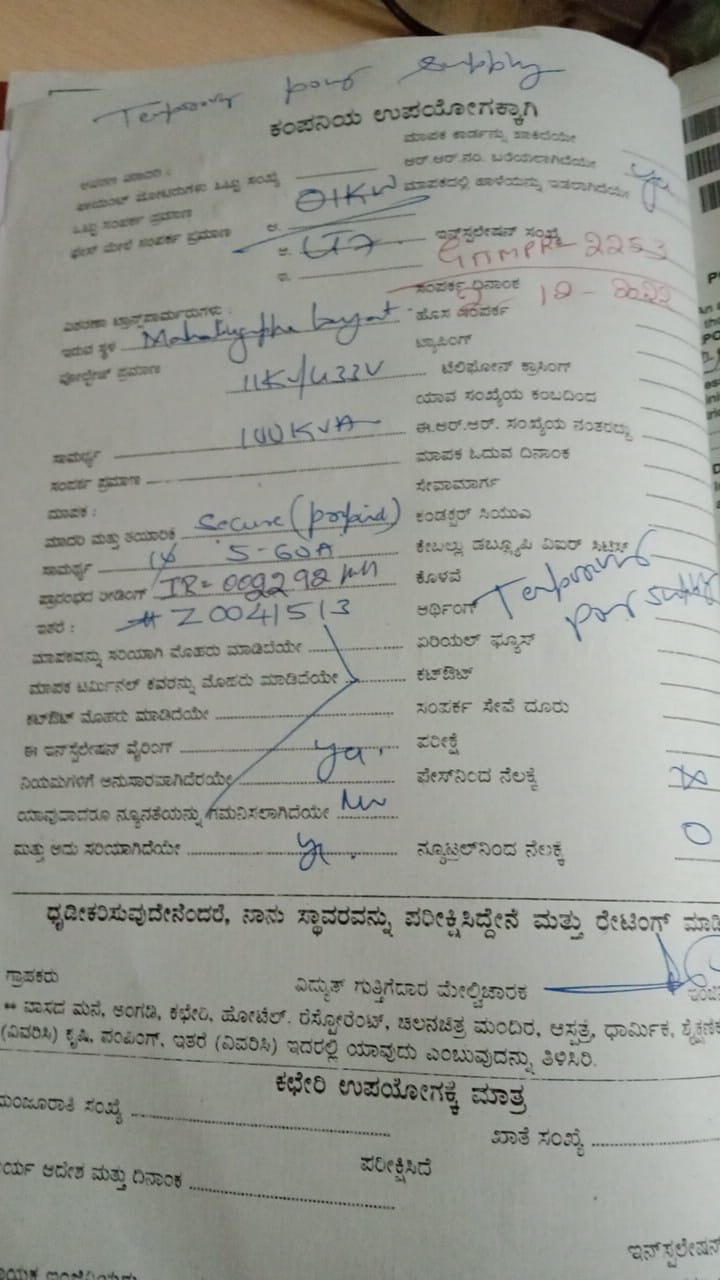 Temporary power supply
ಕಂಪನಿಯ ಉಪಯೋಗಕ್ಕಾಗಿ
ಮಾಪಕ ಕಾರ್ಡನ್ನು ಹಾಕಿದೆಯೇ
ಆರ್.ಆರ್.ನಂ. ಬರೆಯಲಾಗಿದೆಯೇ
ಮಾಪಕದಲ್ಲಿ ಹಾಳೆಯನ್ನು ಇಡಲಾಗಿದೆಯೇ yes
ಒಟ್ಟು ಸಂಪರ್ಕ ಪ್ರಮಾಣ 01KW
ಫೇಸ್ ಮೇಲೆ ಸಂಪರ್ಕ ಪ್ರಮಾಣ ಅ. LT7
ಇನ್‌ಸ್ಟಲೇಷನ್ ಸಂಖ್ಯೆ 2253
ಸಂಪರ್ಕ ದಿನಾಂಕ 12-2022
ವಿತರಣಾ ಟ್ರಾನ್ಸ್‌ಫಾರ್ಮರುಗಳು :
ಇರುವ ಸ್ಥಳ layout
ಹೊಸ ಸಂಪರ್ಕ
ಟ್ಯಾಪಿಂಗ್
ವೋಲ್ಟೇಜ್ ಪ್ರಮಾಣ 11KV/433V
ಟೆಲಿಫೋನ್ ಕ್ರಾಸಿಂಗ್
ಯಾವ ಸಂಖ್ಯೆಯ ಕಂಬದಿಂದ
ಸಾಮರ್ಥ್ಯ 100KVA
ಈ.ಆರ್.ಆರ್. ಸಂಖ್ಯೆಯ ನಂತರದ್ದು
ಸಂಪರ್ಕ ಪ್ರಮಾಣ
ಮಾಪಕ ಓದುವ ದಿನಾಂಕ
ಮಾಪಕ :
ಸೇವಾಮಾರ್ಗ
ಮಾದರಿ ಮತ್ತು ತಯಾರಿಕೆ Secure (prepaid)
ಕಂಡಕ್ಟರ್ ಸಿಯುಎ
ಸಾಮರ್ಥ್ಯ 5-60A
ಕೇಬಲ್ಲು ಡಬ್ಲ್ಯೂಪಿ ವಿಐಆರ್
ಪ್ರಾರಂಭದ ರೀಡಿಂಗ್ IR=
ಕೊಳವೆ
ಇತರೆ : # Z0041513
ಅರ್ಥಿಂಗ್ Temporary power supply
ಮಾಪಕವನ್ನು ಸರಿಯಾಗಿ ಮೊಹರು ಮಾಡಿದೆಯೇ
ಏರಿಯಲ್ ಫ್ಯೂಸ್
ಮಾಪಕ ಟರ್ಮಿನಲ್ ಕವರನ್ನು ಮೊಹರು ಮಾಡಿದೆಯೇ
ಕಟ್‌ಔಟ್
ಕಟ್‌ಔಟ್ ಮೊಹರು ಮಾಡಿದೆಯೇ
ಸಂಪರ್ಕ ಸೇವೆ ದೂರು
ಈ ಇನ್‌ಸ್ಟಲೇಷನ್ ವೈರಿಂಗ್ yes
ಪರೀಕ್ಷೆ
ನಿಯಮಗಳಿಗೆ ಅನುಸಾರವಾಗಿದೆರಯೇ
ಫೇಸ್‌ನಿಂದ ನೆಲಕ್ಕೆ
ಯಾವುದಾದರೂ ನ್ಯೂನತೆಯನ್ನು ಗಮನಿಸಲಾಗಿದೆಯೇ No
ಮತ್ತು ಅದು ಸರಿಯಾಗಿದೆಯೇ yes
ನ್ಯೂಟ್ರಲ್‌ನಿಂದ ನೆಲಕ್ಕೆ 0
ಧೃಡೀಕರಿಸುವುದೇನೆಂದರೆ, ನಾನು ಸ್ಥಾವರವನ್ನು ಪರೀಕ್ಷಿಸಿದ್ದೇನೆ ಮತ್ತು ರೇಟಿಂಗ್
ಗ್ರಾಪಕರು
ವಿದ್ಯುತ್ ಗುತ್ತಿಗೆದಾರ ಮೇಲ್ವಿಚಾರಕ
** ವಾಸದ ಮನೆ, ಅಂಗಡಿ, ಕಛೇರಿ, ಹೋಟೆಲ್. ರೆಸ್ಟೋರೆಂಟ್, ಚಲನಚಿತ್ರ ಮಂದಿರ, ಆಸ್ಪತ್ರೆ, ಧಾರ್ಮಿಕ, ಶೈಕ್ಷಣಿಕ
(ವಿವರಿಸಿ) ಕೃಷಿ, ಪಂಪಿಂಗ್, ಇತರೆ (ವಿವರಿಸಿ) ಇದರಲ್ಲಿ ಯಾವುದು ಎಂಬುವುದನ್ನು ತಿಳಿಸಿರಿ.
ಕಛೇರಿ ಉಪಯೋಗಕ್ಕೆ ಮಾತ್ರ
ಮಂಜೂರಾತಿ ಸಂಖ್ಯೆ
ಖಾತೆ ಸಂಖ್ಯೆ
ಆದೇಶ ಮತ್ತು ದಿನಾಂಕ
ಪರೀಕ್ಷಿಸಿದೆ